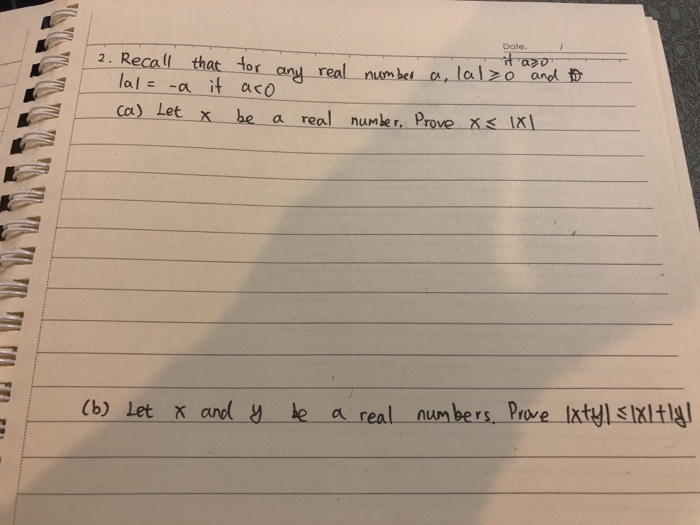 Date. /
if a≥0
2. Recall that for any real number a, |a|≥0 and
|a| = -a if a<0
(a) Let x be a real number. Prove x ≤ |x|
(b) Let x and y be a real numbers. Prove |x+y| ≤ |x|+|y|